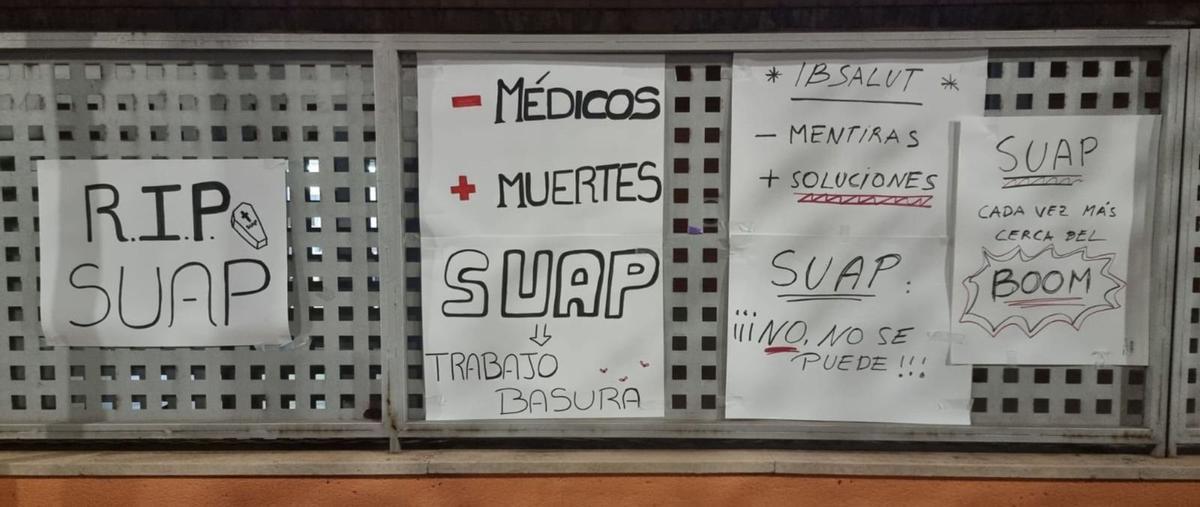 R.I.P.
SUAP
- MÉDICOS
+ MUERTES
SUAP
⇓
TRABAJO
BASURA
* IBSALUT *
- MENTIRAS
+ SOLUCIONES
SUAP:
¡¡¡NO, NO SE
PUEDE!!!
SUAP
CADA VEZ MÁS
CERCA DEL
BOOM